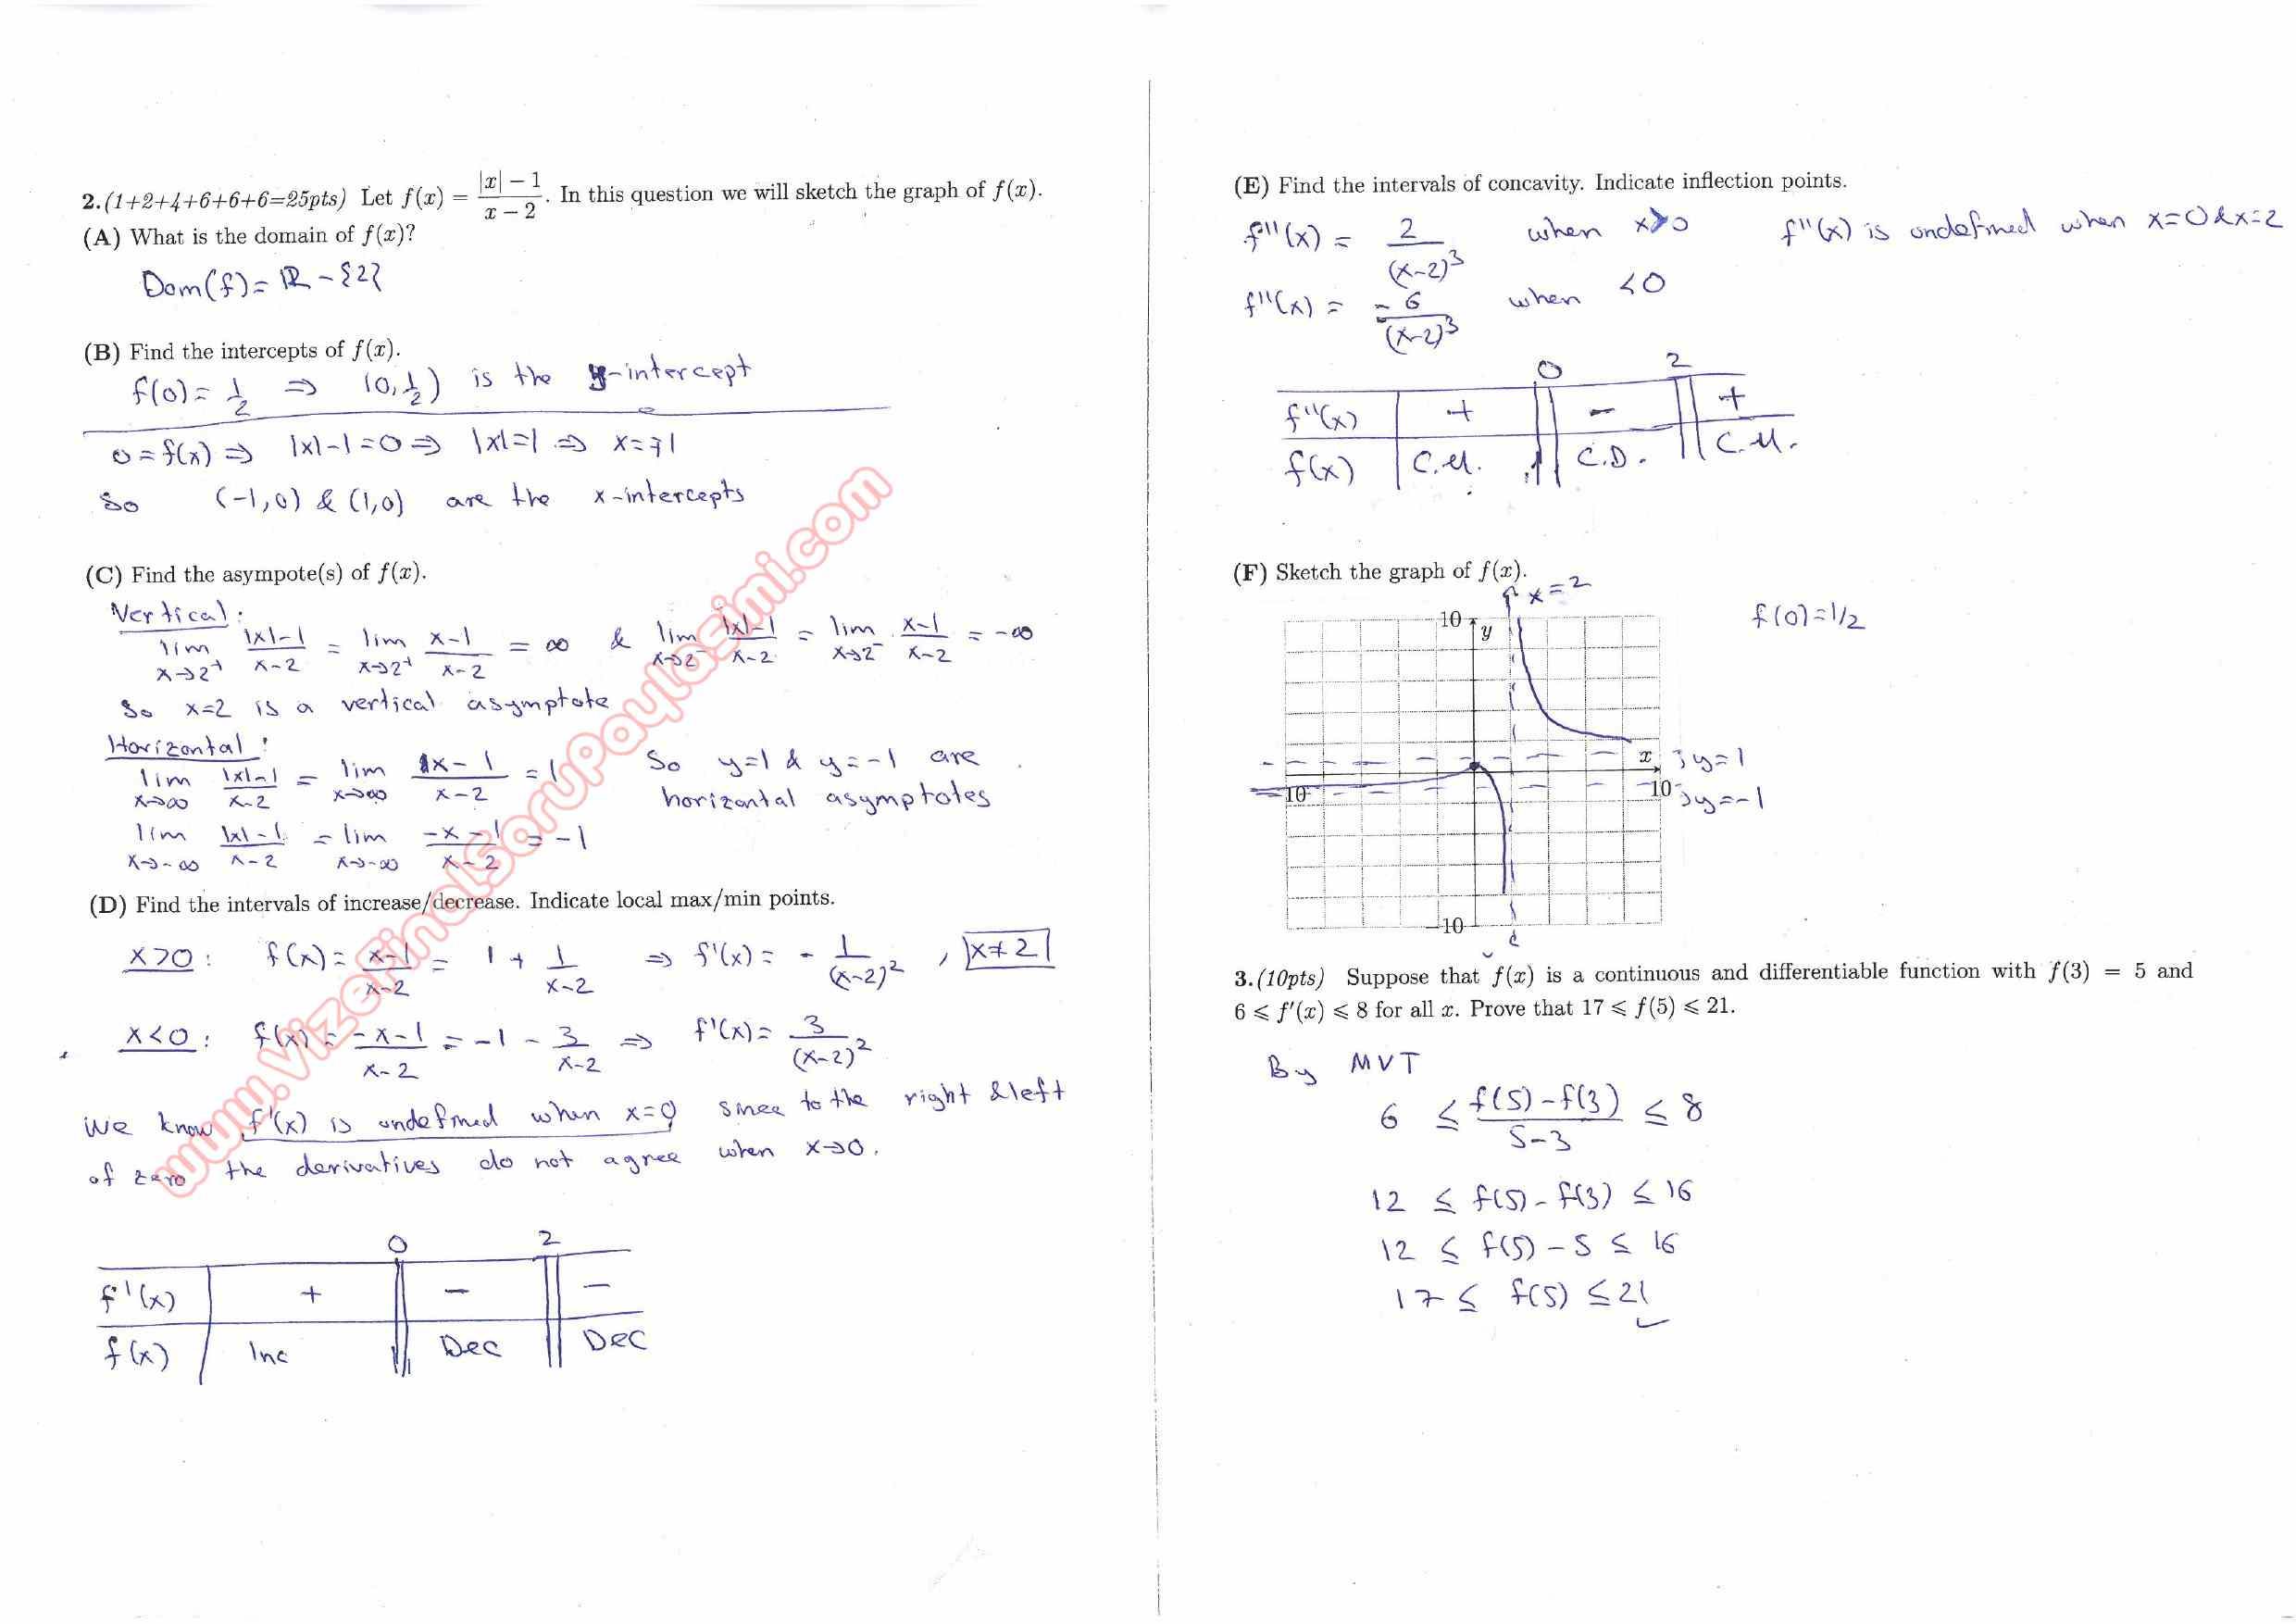 2.(1+2+4+6+6+6=25pts) Let f(x) = (|x| − 1)/(x − 2). In this question we will sketch the graph of f(x).
(A) What is the domain of f(x)?
Dom(f) = ℝ - {2}
(B) Find the intercepts of f(x).
f(0) = 1/2 ⇒ (0, 1/2) is the y-intercept
0 = f(x) ⇒ |x|-1=0 ⇒ |x|=1 ⇒ x=∓1
So (-1,0) & (1,0) are the x-intercepts
(C) Find the asympote(s) of f(x).
Vertical:
lim x→2⁺ (|x|-1)/(x-2) = lim x→2⁺ (x-1)/(x-2) = ∞ & lim x→2⁻ (|x|-1)/(x-2) = lim x→2⁻ (x-1)/(x-2) = -∞
So x=2 is a vertical asymptote
Horizontal:
lim x→∞ (|x|-1)/(x-2) = lim x→∞ (x-1)/(x-2) = 1 So y=1 & y=-1 are
horizontal asymptotes
lim x→-∞ (|x|-1)/(x-2) = lim x→-∞ (-x-1)/(x-2) = -1
(D) Find the intervals of increase/decrease. Indicate local max/min points.
x>0: f(x) = (x-1)/(x-2) = 1 + 1/(x-2) ⇒ f'(x) = - 1/(x-2)², x≠2
x<0: f(x) = (-x-1)/(x-2) = -1 - 3/(x-2) ⇒ f'(x) = 3/(x-2)²
We know f'(x) is undefined when x=0 since to the right & left
of zero the derivatives do not agree when x→0.
0 2
f'(x) + - -
f(x) Inc Dec Dec
www.VizeFinalSoruPaylasimi.com
(E) Find the intervals of concavity. Indicate inflection points.
f''(x) = 2/(x-2)³ when x>0 f''(x) is undefined when x=0 & x=2
f''(x) = -6/(x-2)³ when <0
0 2
f''(x) + - +
f(x) C.U. C.D. C.U.
(F) Sketch the graph of f(x).
x=2
f(0)=1/2
10 y
x y=1
-10 10 y=-1
-10
3.(10pts) Suppose that f(x) is a continuous and differentiable function with f(3) = 5 and
6 ⩽ f′(x) ⩽ 8 for all x. Prove that 17 ⩽ f(5) ⩽ 21.
By MVT
6 ≤ (f(5)-f(3))/(5-3) ≤ 8
12 ≤ f(5) - f(3) ≤ 16
12 ≤ f(5) - 5 ≤ 16
17 ≤ f(5) ≤ 21